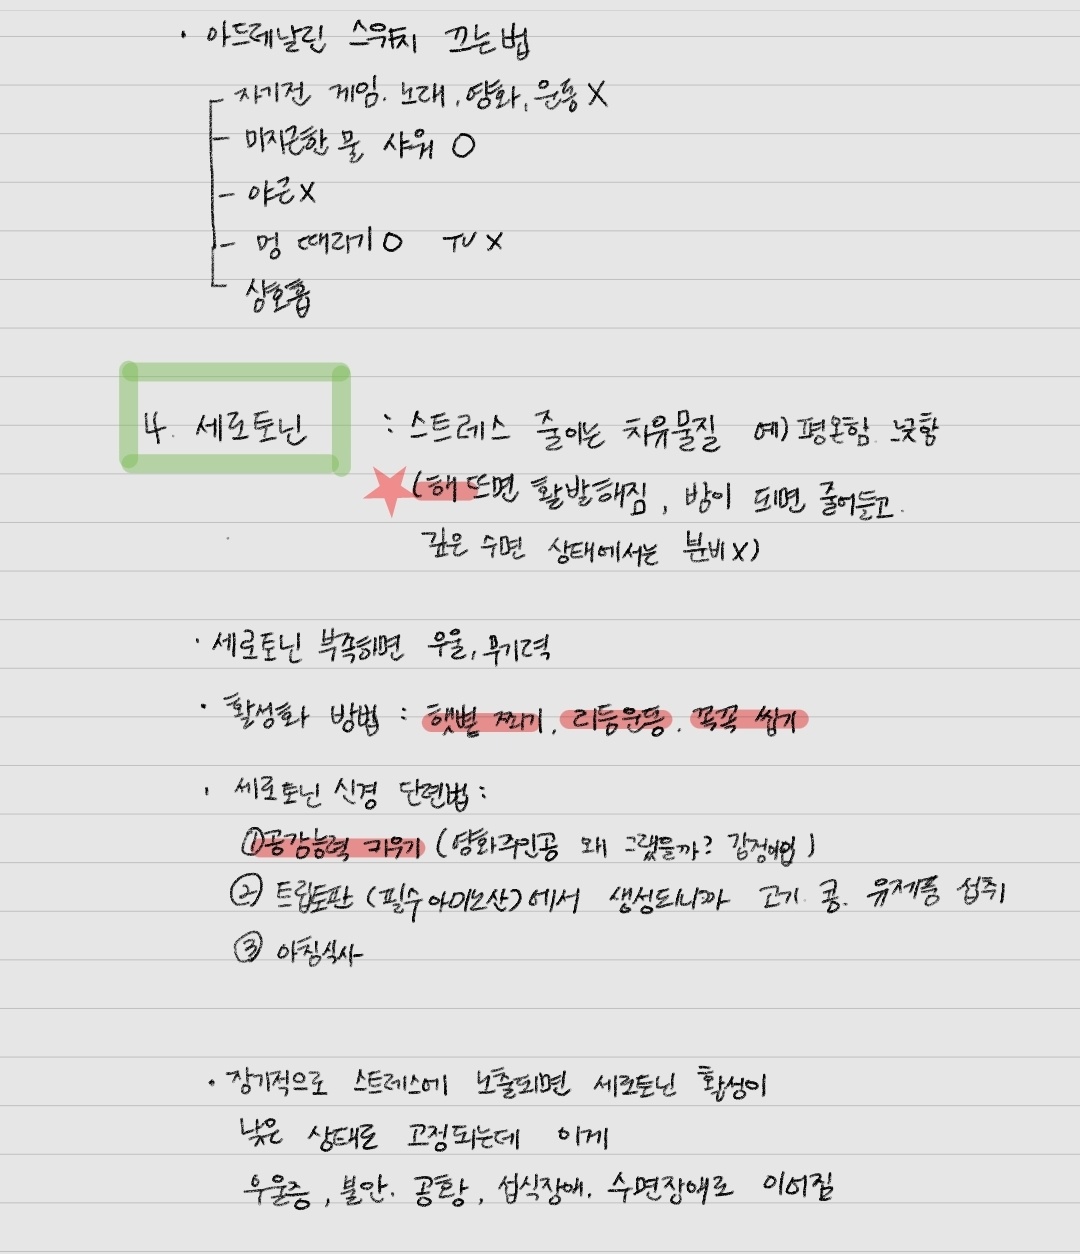 · 아드레날린 스위치 끄는법
- 자기전 게임. 노래, 영화, 운동 X
- 미지근한 물 샤워 O
- 야근 X
- 멍 때리기 O TV X
- 상호흡
4. 세로토닌 : 스트레스 줄이는 치유물질 예) 평온함. 느긋함
(해 뜨면 활발해짐, 밤이 되면 줄어들고.
깊은 수면 상태에서는 분비 X)
· 세로토닌 부족하면 우울, 무기력
· 활성화 방법 : 햇볕 쬐기, 리듬운동, 꼭꼭 씹기
· 세로토닌 신경 단련법 :
① 공감능력 키우기 (영화주인공 왜 그랬을까? 감정이입)
② 트립토판 (필수 아미노산)에서 생성되니까 고기. 콩. 유제품 섭취
③ 아침식사
· 장기적으로 스트레스에 노출되면 세로토닌 활성이
낮은 상태로 고정되는데 이게
우울증, 불안. 공황, 섭식장애. 수면장애로 이어짐